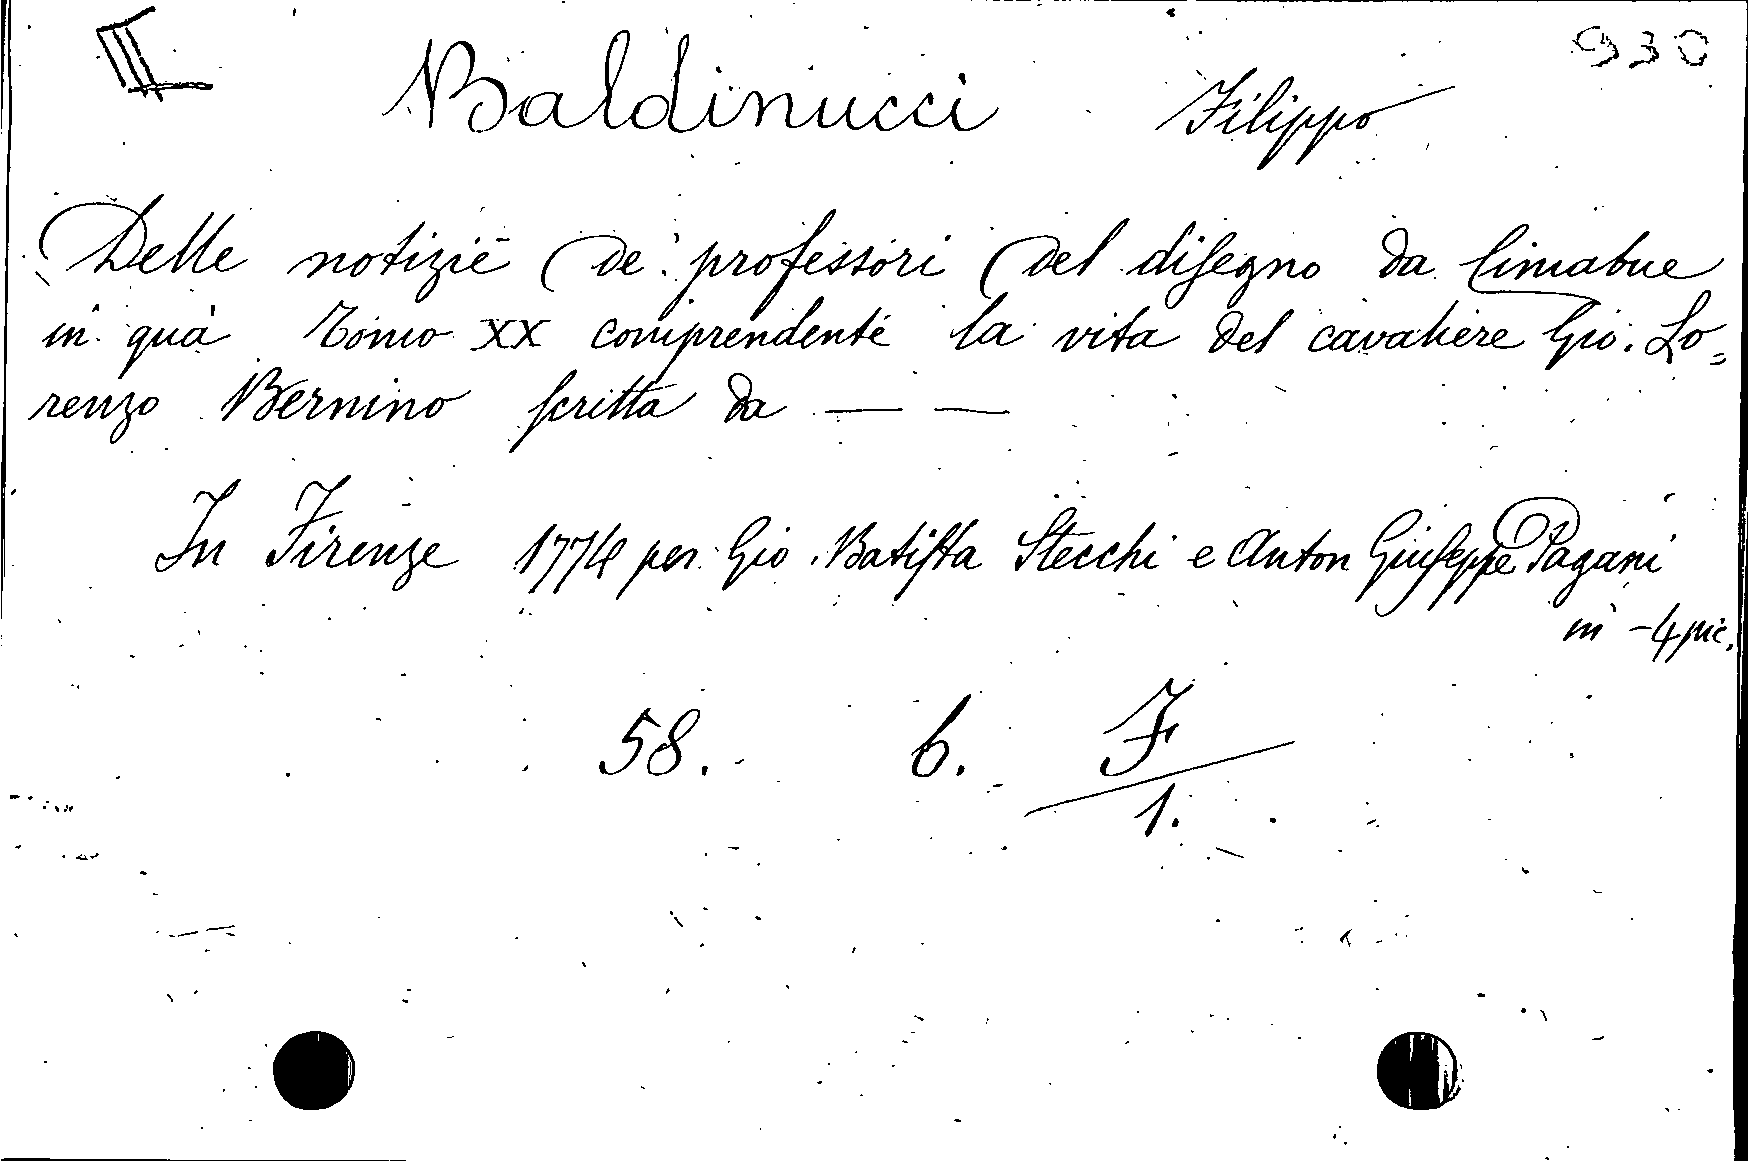 III 930
Baldinucci Filippo
Delle notizie de' professori del diſegno da Cimabue
in quà Tomo XX comprendente la vita del cavaliere Gio. Lo=
renzo Bernino ſcritta da — —
In Firenze 1774 per Gio. Batiſta Stecchi e Anton Giuſeppe Pagani
in -4 pic.
58. 6. F
1.